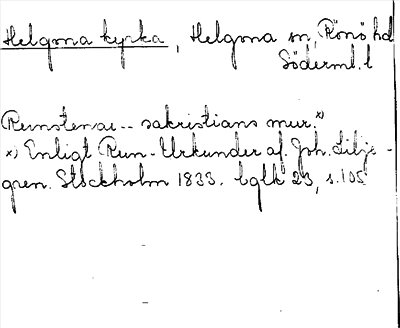 Helgona kyrka, Helgona sn, Rönö hd
Söderml. l
Runstenar -- sakristians mur.x)
x) Enligt Run-Urkunder af. Joh. Lilje-
gren. Stockholm 1833. 23, s. 105